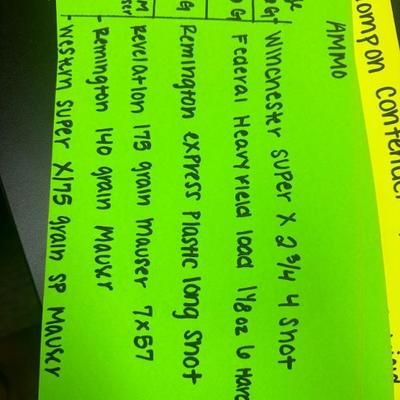 ompon Contender
AMMO
Winchester super X 2 3/4 4 Shot
Federal Heavy Field load 1 1/8 oz 6 Hard
Remington express Plastic long shot
Revelation 175 grain mauser 7x57
- Remington 140 grain Mauser
- Western super X 175 grain SP Mauser